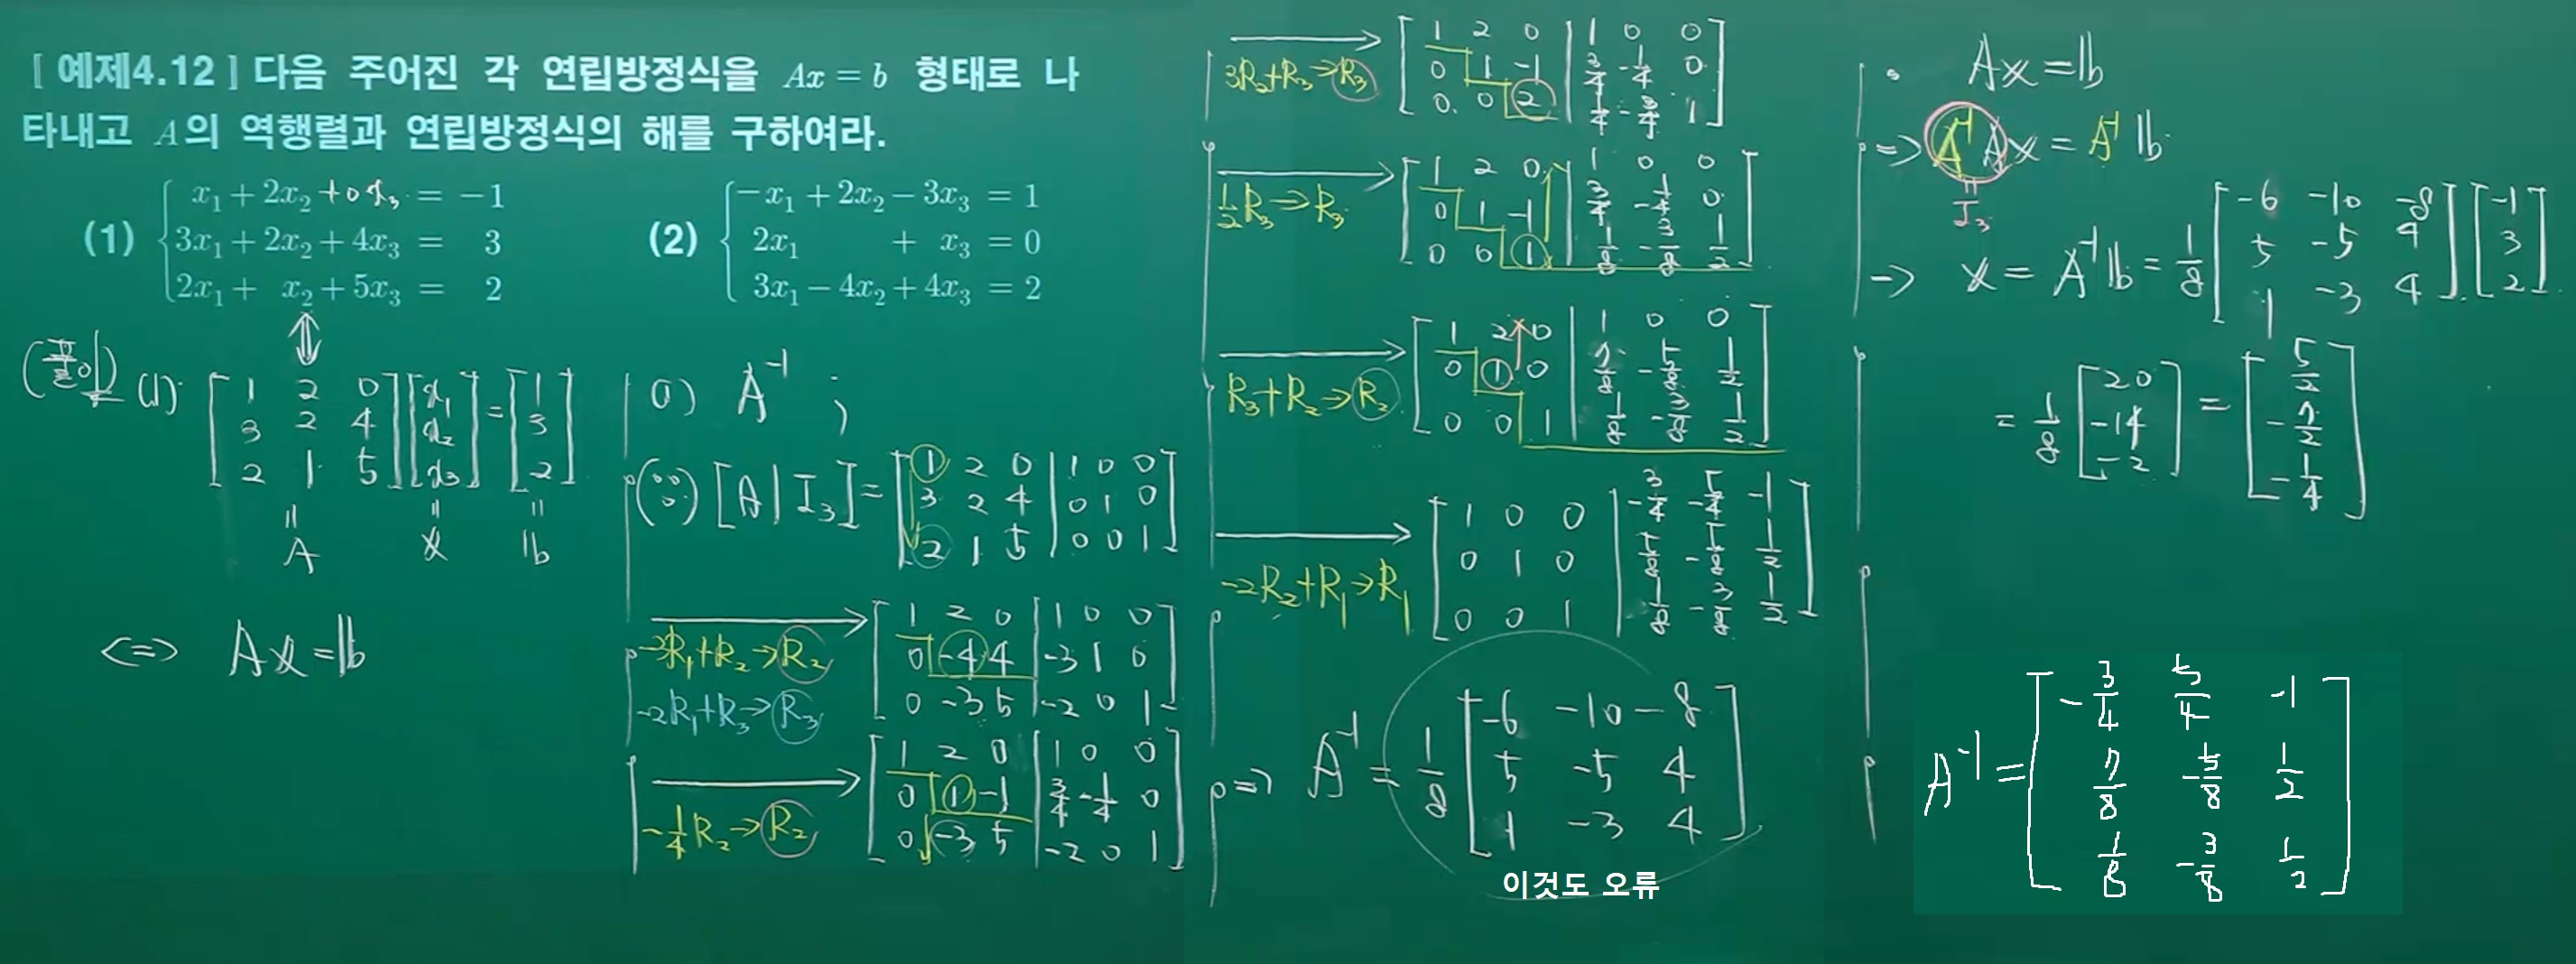 [ 예제4.12 ] 다음 주어진 각 연립방정식을 Ax = b 형태로 나
타내고 A의 역행렬과 연립방정식의 해를 구하여라.
(1) x₁ + 2x₂ + 0x₃ = -1
3x₁ + 2x₂ + 4x₃ = 3
2x₁ + x₂ + 5x₃ = 2
(2) -x₁ + 2x₂ - 3x₃ = 1
2x₁ + x₃ = 0
3x₁ - 4x₂ + 4x₃ = 2
(풀이) (1)
[1 2 0; 3 2 4; 2 1 5] [x₁; x₂; x₃] = [1; 3; 2]
= A = x = b
<=> Ax = b
a) A⁻¹ ;
(∵) [A | I₃] = [1 2 0 | 1 0 0; 3 2 4 | 0 1 0; 2 1 5 | 0 0 1]
-3R₁+R₂→R₂
-2R₁+R₃→R₃
[1 2 0 | 1 0 0; 0 -4 4 | -3 1 0; 0 -3 5 | -2 0 1]
-1/4 R₂→R₂
[1 2 0 | 1 0 0; 0 1 -1 | 3/4 -1/4 0; 0 -3 5 | -2 0 1]
3R₂+R₃→R₃
[1 2 0 | 1 0 0; 0 1 -1 | 3/4 -1/4 0; 0 0 2 | 1/4 -3/4 1]
1/2 R₃→R₃
[1 2 0 | 1 0 0; 0 1 -1 | 3/4 -1/4 0; 0 0 1 | 1/8 -3/8 1/2]
R₃+R₂→R₂
[1 2 0 | 1 0 0; 0 1 0 | 7/8 -5/8 1/2; 0 0 1 | 1/8 -3/8 1/2]
-2R₂+R₁→R₁
[1 0 0 | -3/4 -5/4 -1; 0 1 0 | 5/8 -5/8 1/2; 0 0 1 | 1/8 -3/8 1/2]
=> A⁻¹ = 1/8 [-6 -10 -8; 5 -5 4; 1 -3 4]
이것도 오류
Ax = b
=> A⁻¹Ax = A⁻¹b
= I₃
-> x = A⁻¹b = 1/8 [-6 -10 -8; 5 -5 4; 1 -3 4] [-1; 3; 2]
= 1/8 [20; -14; -2] = [5/2; -7/2; -1/4]
A⁻¹ = [-3/4 5/4 -1; 7/8 -5/8 1/2; 1/8 -3/8 1/2]